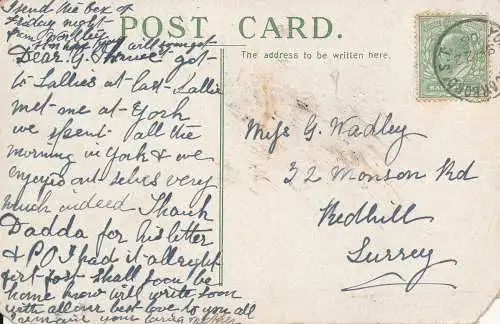 I send the box of
Friday night
from
will
Dear G. I have got
to Lallies at-last-Lallie
met-me at-York
we spent- all the
morning in York & we
enjoyed out-selves very
much indeed Thank
Dadda for his letter
& P O I had it allright
first-post- shall soon be
home know will write soon
with all our best love to you all
I remain your loving mother
POST CARD.
The address to be written here.
Miss G. Wadley
32 Monson Rd
Redhill
Surrey